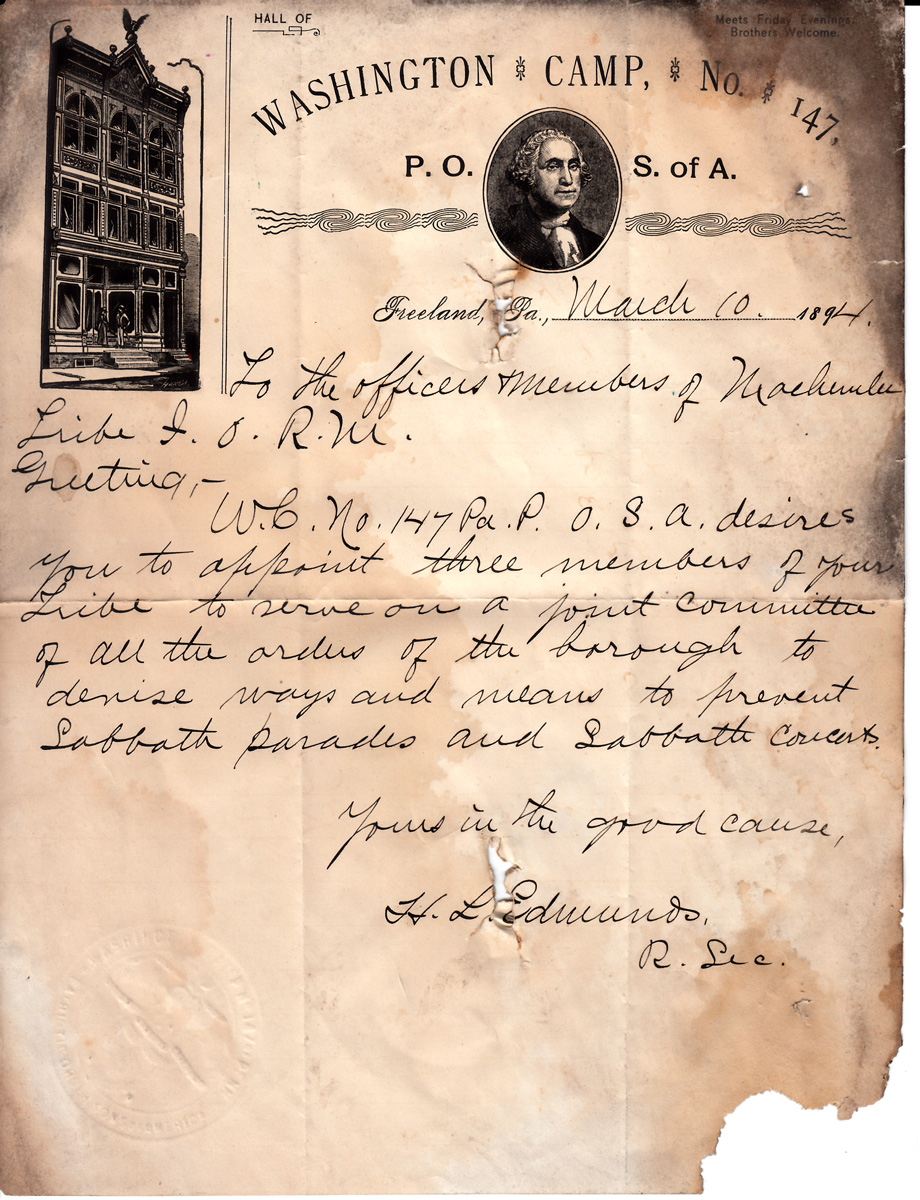 HALL OF
Meets Friday Evenings.
Brothers Welcome.
WASHINGTON CAMP, No. 147,
P. O. S. of A.
Freeland, Pa., March 10. 1894.
To the officers & members of
Tribe I. O. R. M.
Greeting,-
W. C. No. 147 Pa. P. O. S. A. desires
you to appoint three members of your
Tribe to serve on a joint committee
of all the orders of the borough to
devise ways and means to prevent
Sabbath parades and Sabbath concerts.
Yours in the good cause,
H. L. Edmunds,
R. Sec.